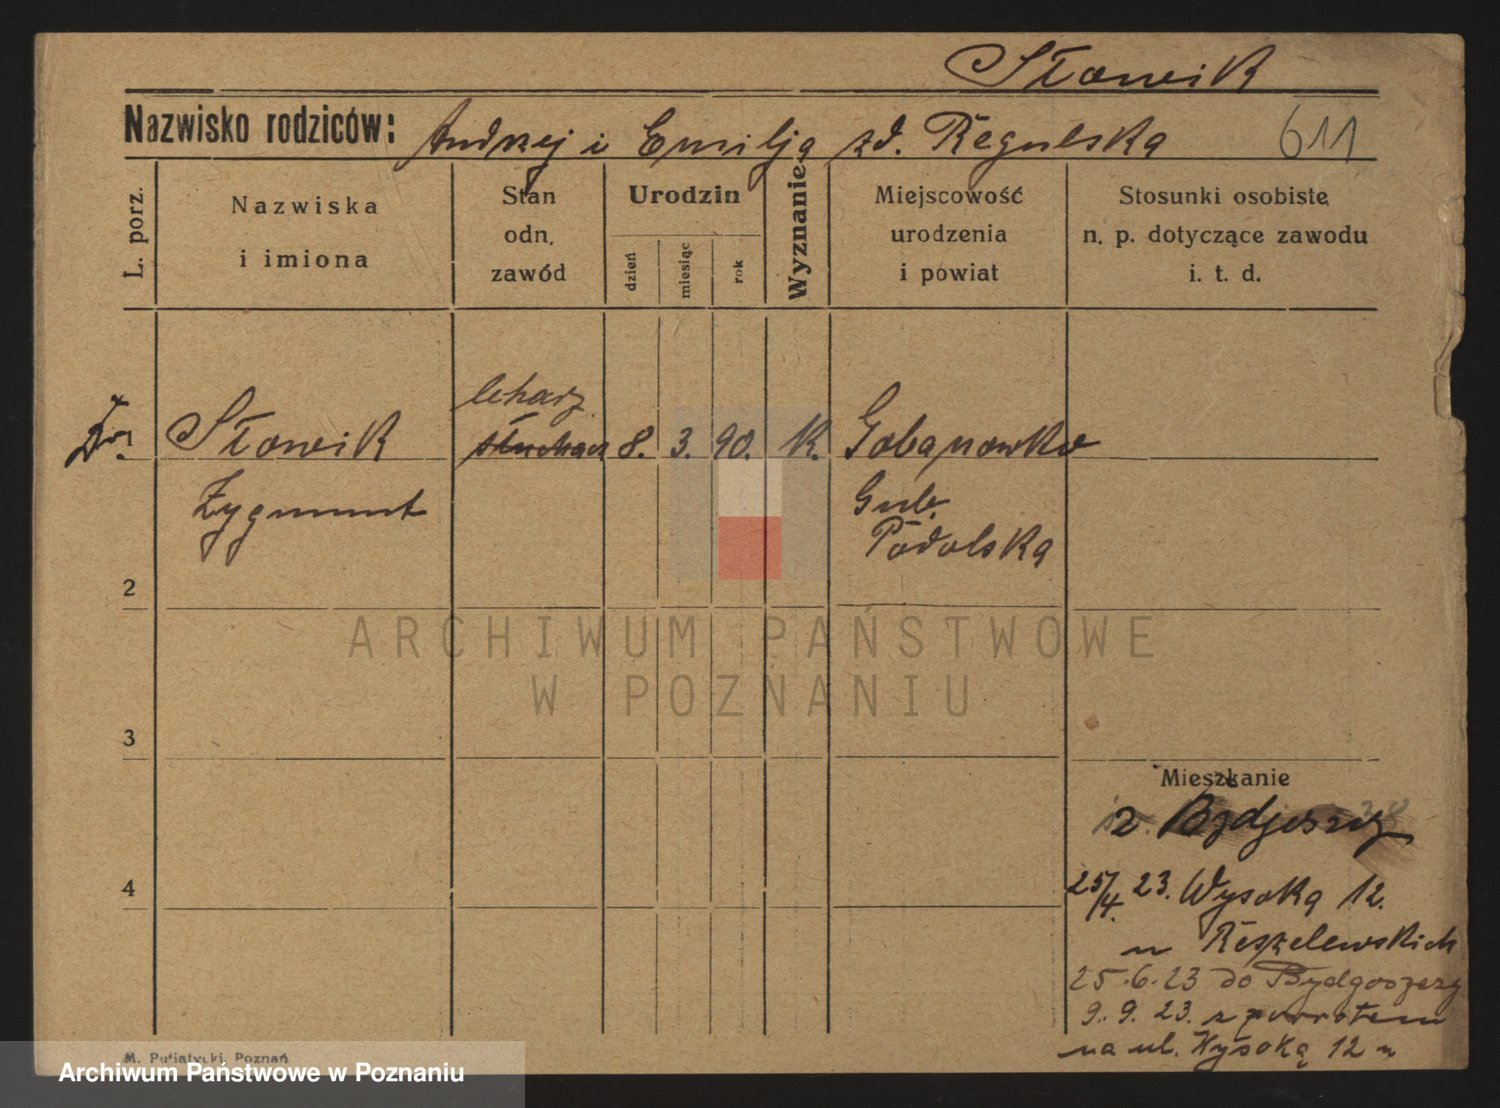 Słowik
Nazwisko rodziców: Andrzej i Emilja zd. Regulska 611
L. porz.
Nazwiska
i imiona
Stan
odn.
zawód
Urodzin
dzień
miesiąc
rok
Wyznanie
Miejscowość
urodzenia
i powiat
Stosunki osobiste
n. p. dotyczące zawodu
i. t. d.
lekarz
Dr. Słowik słuchacz 8. 3. 90. K.
Zygmunt
Gub.
Podolska
2
3
4
Mieszkanie
z Bydgoszczy
25/4. 23. Wysoka 12.
u Reszelewskich
25.6.23 do Bydgoszczy
9. 9. 23. z powrotem
na ul. Wysoką 12 u
M. Putiatycki, Poznań
ARCHIWUM PAŃSTWOWE
W POZNANIU
Archiwum Państwowe w Poznaniu